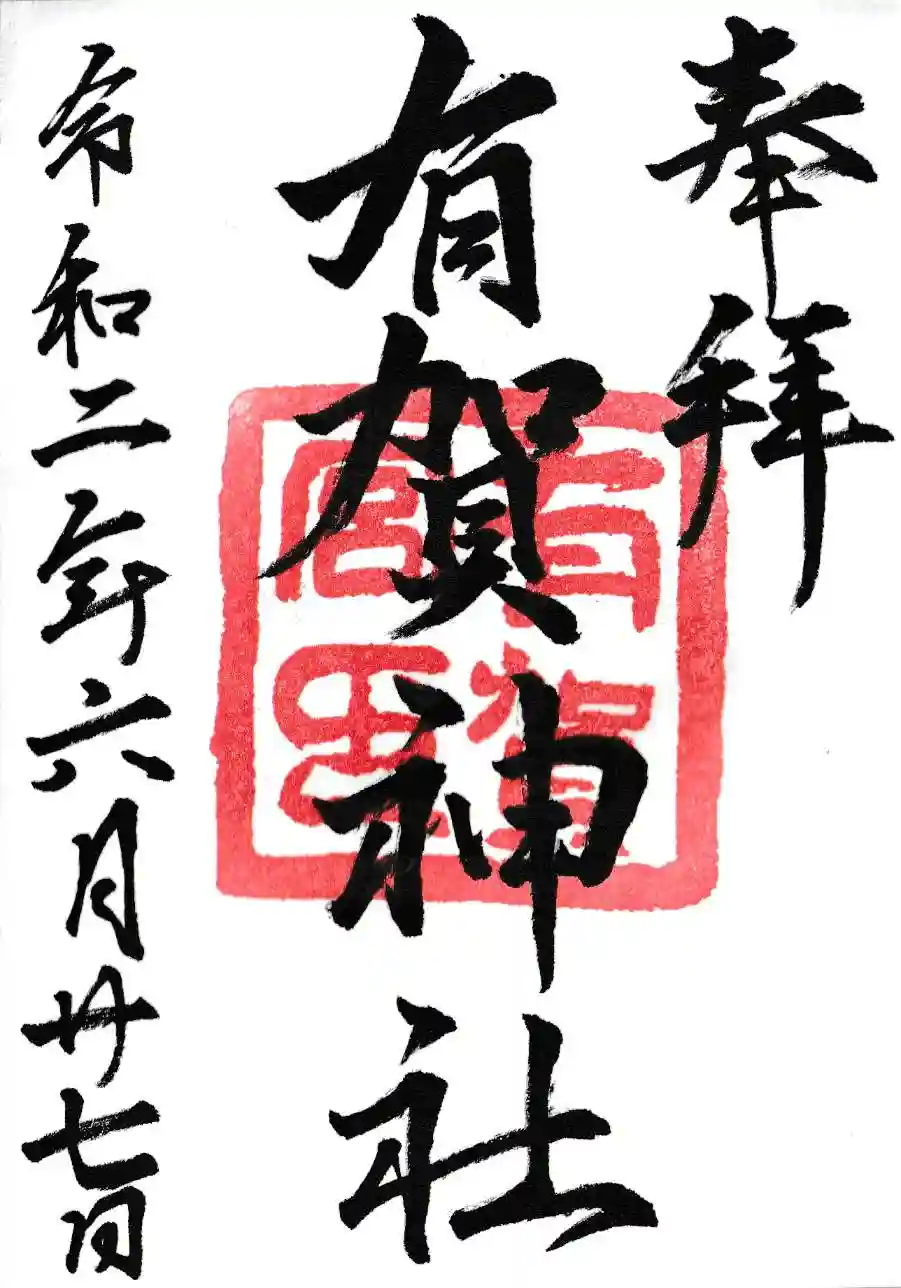 奉拝
有賀神社
有賀宮印
令和二年六月廿七日